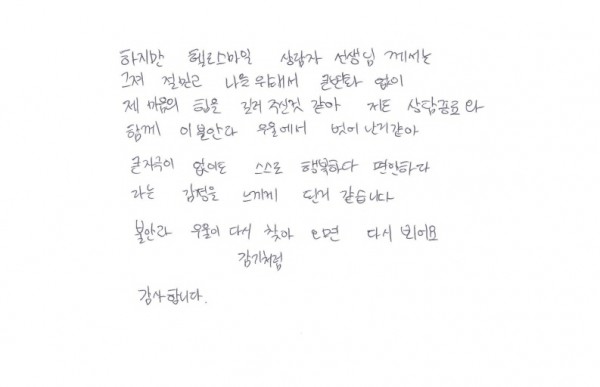 하지만 헬로스마일 상담자 선생님 께서는
그저 절믿고 나을위해서 큰변화 없이
제 마음의 힘을 길러 주신것 같아 저도 상담종료와
함께 이불안과 우울에서 벗어 난거같아
큰자극이 없어도 스스로 행복하다 편안하다
라는 감정을 느끼게 된거 같습니다
불안과 우울이 다시 찾아 오면 다시 뵈어요
감기처럼
감사합니다.